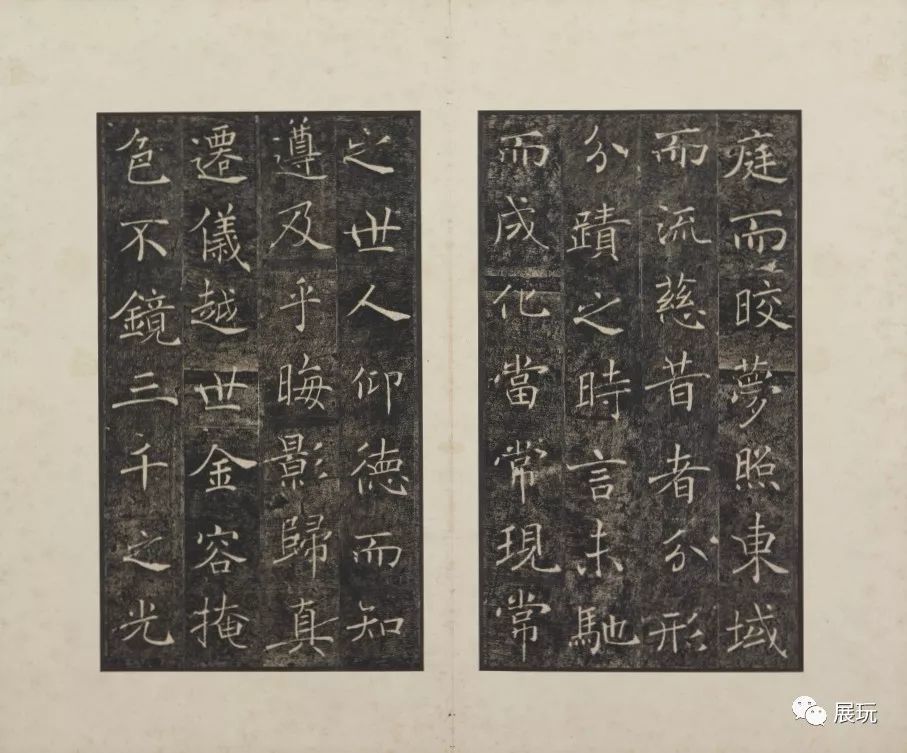 庭而皎夢照東域
而流慈昔者分形
分蹟之時言未馳
而成化當常現常
之世人仰德而知
遵及乎晦影歸真
遷儀越世金容掩
色不鏡三千之光
展玩